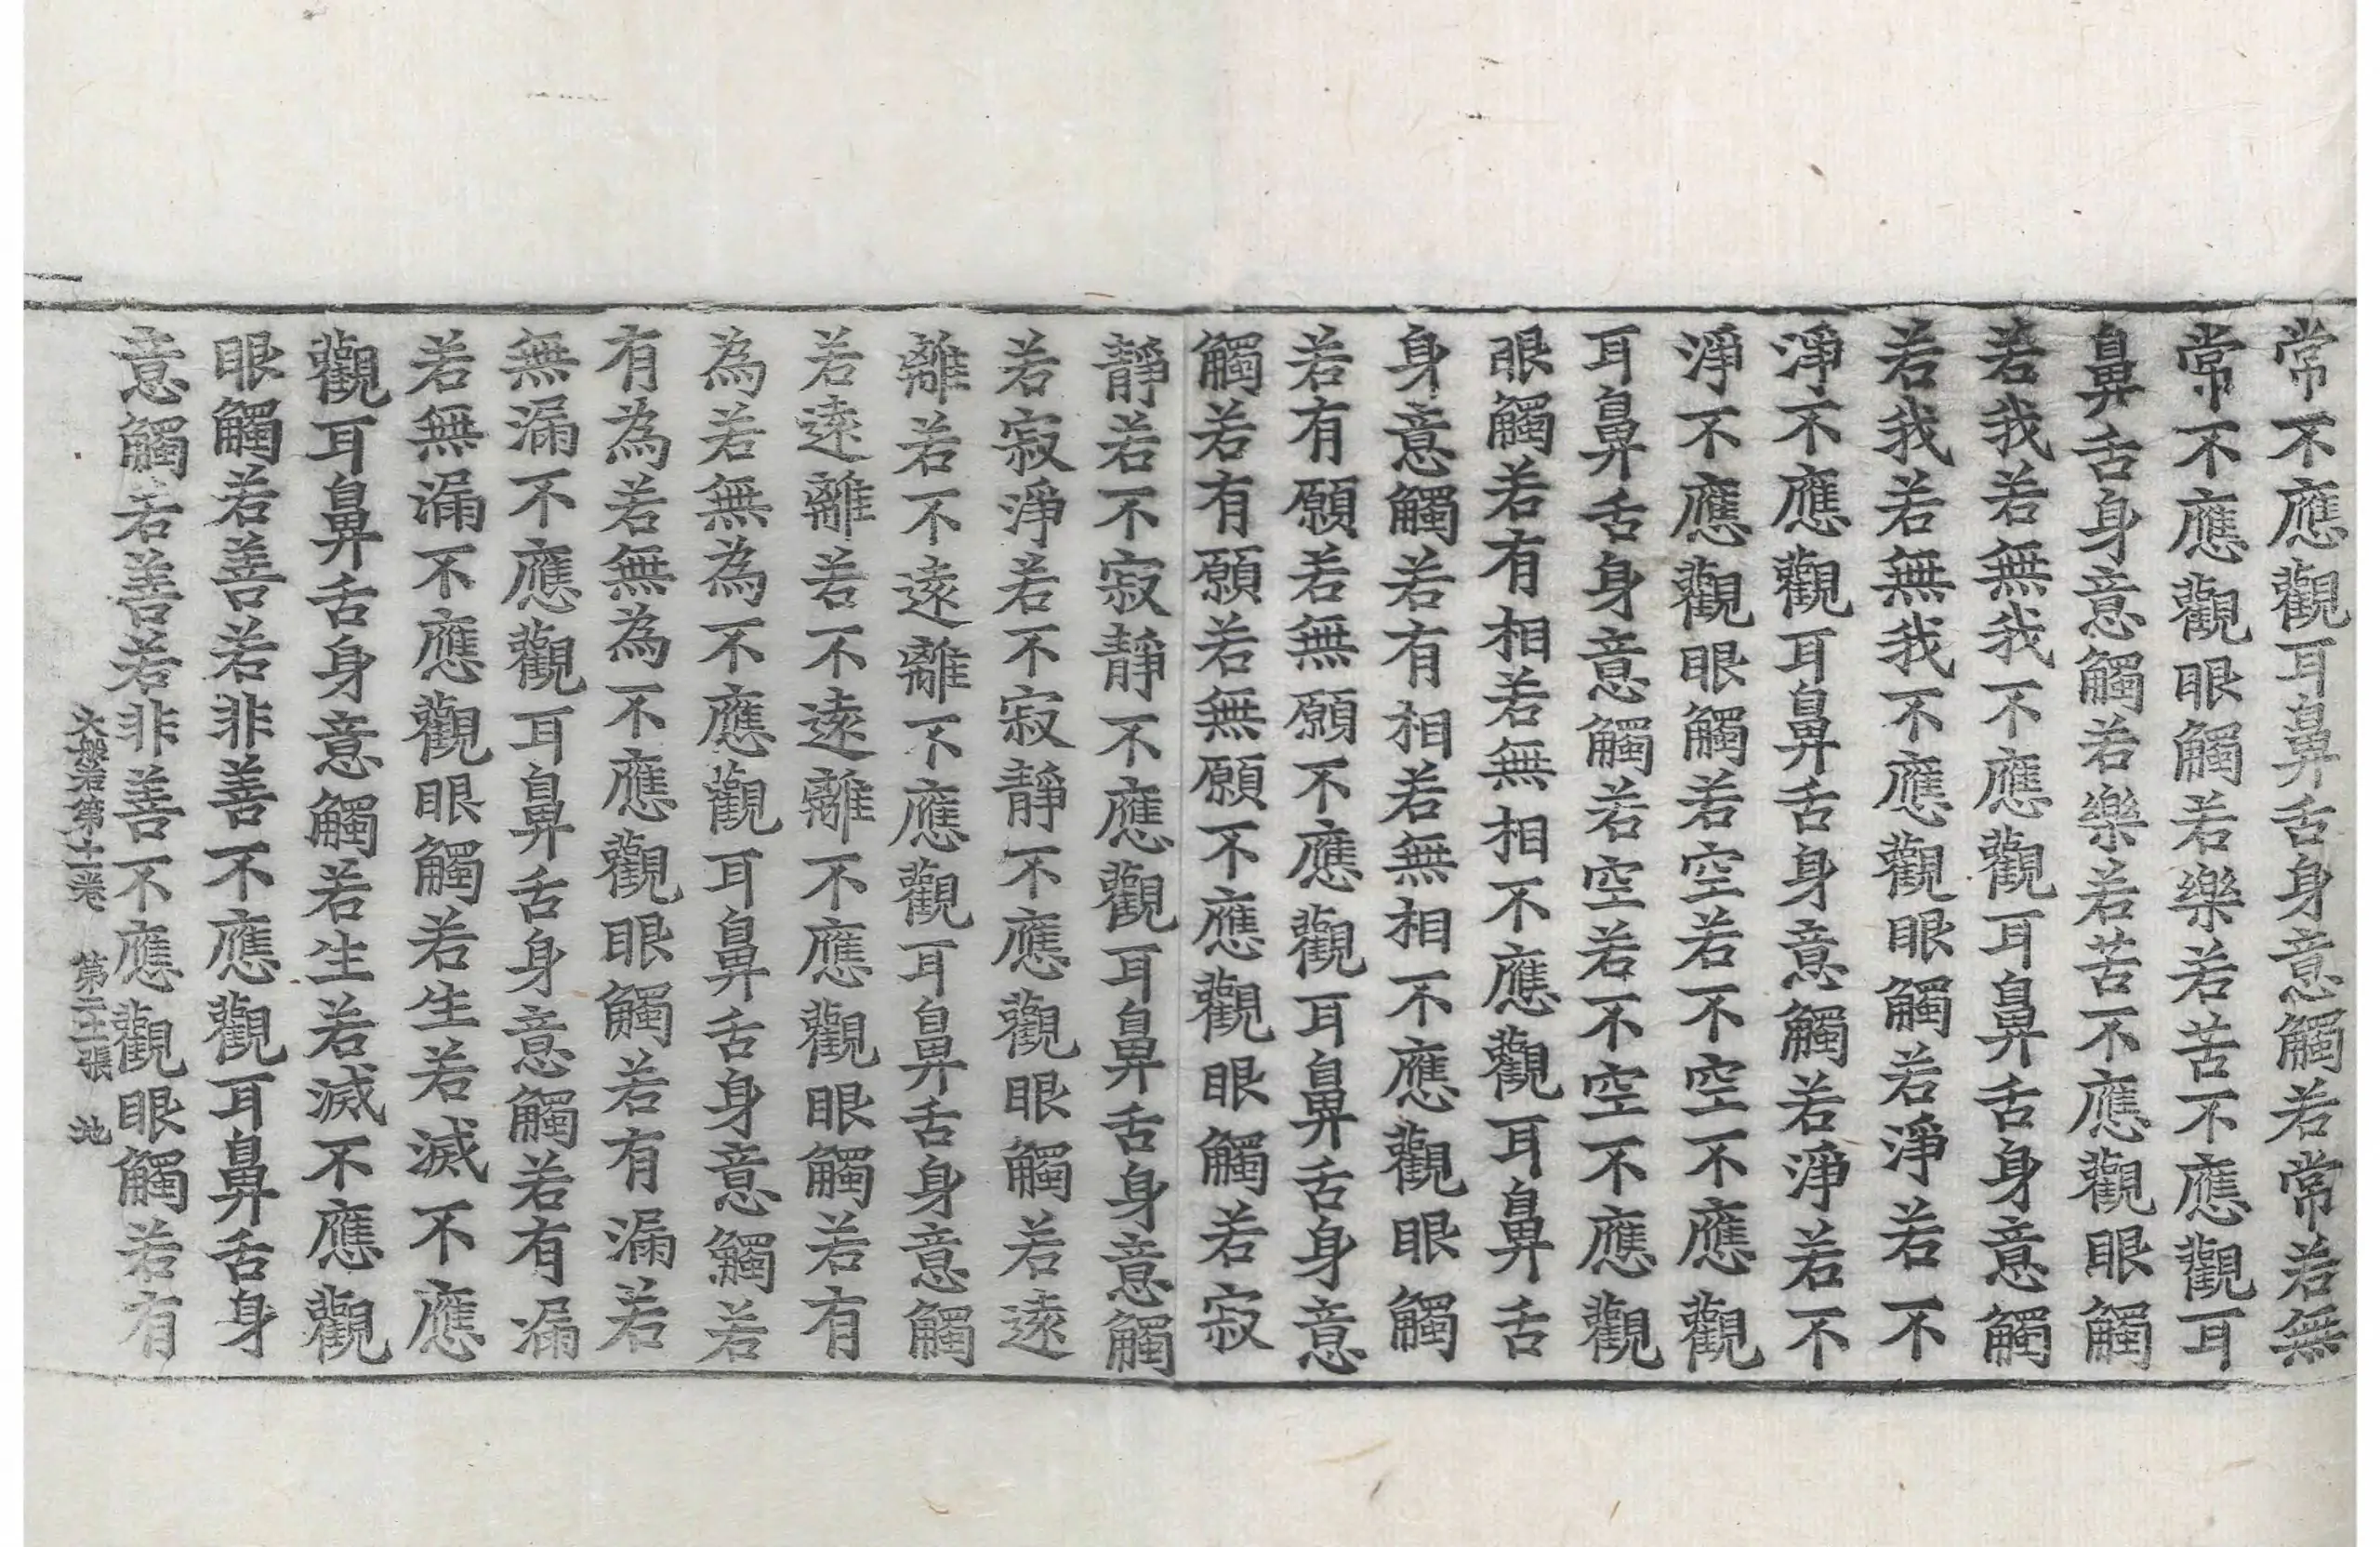 常不應觀耳鼻舌身意觸若常若無
常不應觀眼觸若樂若苦不應觀耳
鼻舌身意觸若樂若苦不應觀眼觸
若我若無我不應觀耳鼻舌身意觸
若我若無我不應觀眼觸若淨若不
淨不應觀耳鼻舌身意觸若淨若不
淨不應觀眼觸若空若不空不應觀
耳鼻舌身意觸若空若不空不應觀
眼觸若有相若無相不應觀耳鼻舌
身意觸若有相若無相不應觀眼觸
若有願若無願不應觀耳鼻舌身意
觸若有願若無願不應觀眼觸若寂
靜若不寂靜不應觀耳鼻舌身意觸
若寂淨若不寂靜不應觀眼觸若遠
離若不遠離不應觀耳鼻舌身意觸
若遠離若不遠離不應觀眼觸若有
為若無為不應觀耳鼻舌身意觸若
有為若無為不應觀眼觸若有漏若
無漏不應觀耳鼻舌身意觸若有漏
若無漏不應觀眼觸若生若滅不應
觀耳鼻舌身意觸若生若滅不應觀
眼觸若善若非善不應觀耳鼻舌身
意觸若善若非善不應觀眼觸若有
大般若第十一卷 第二十二張 地